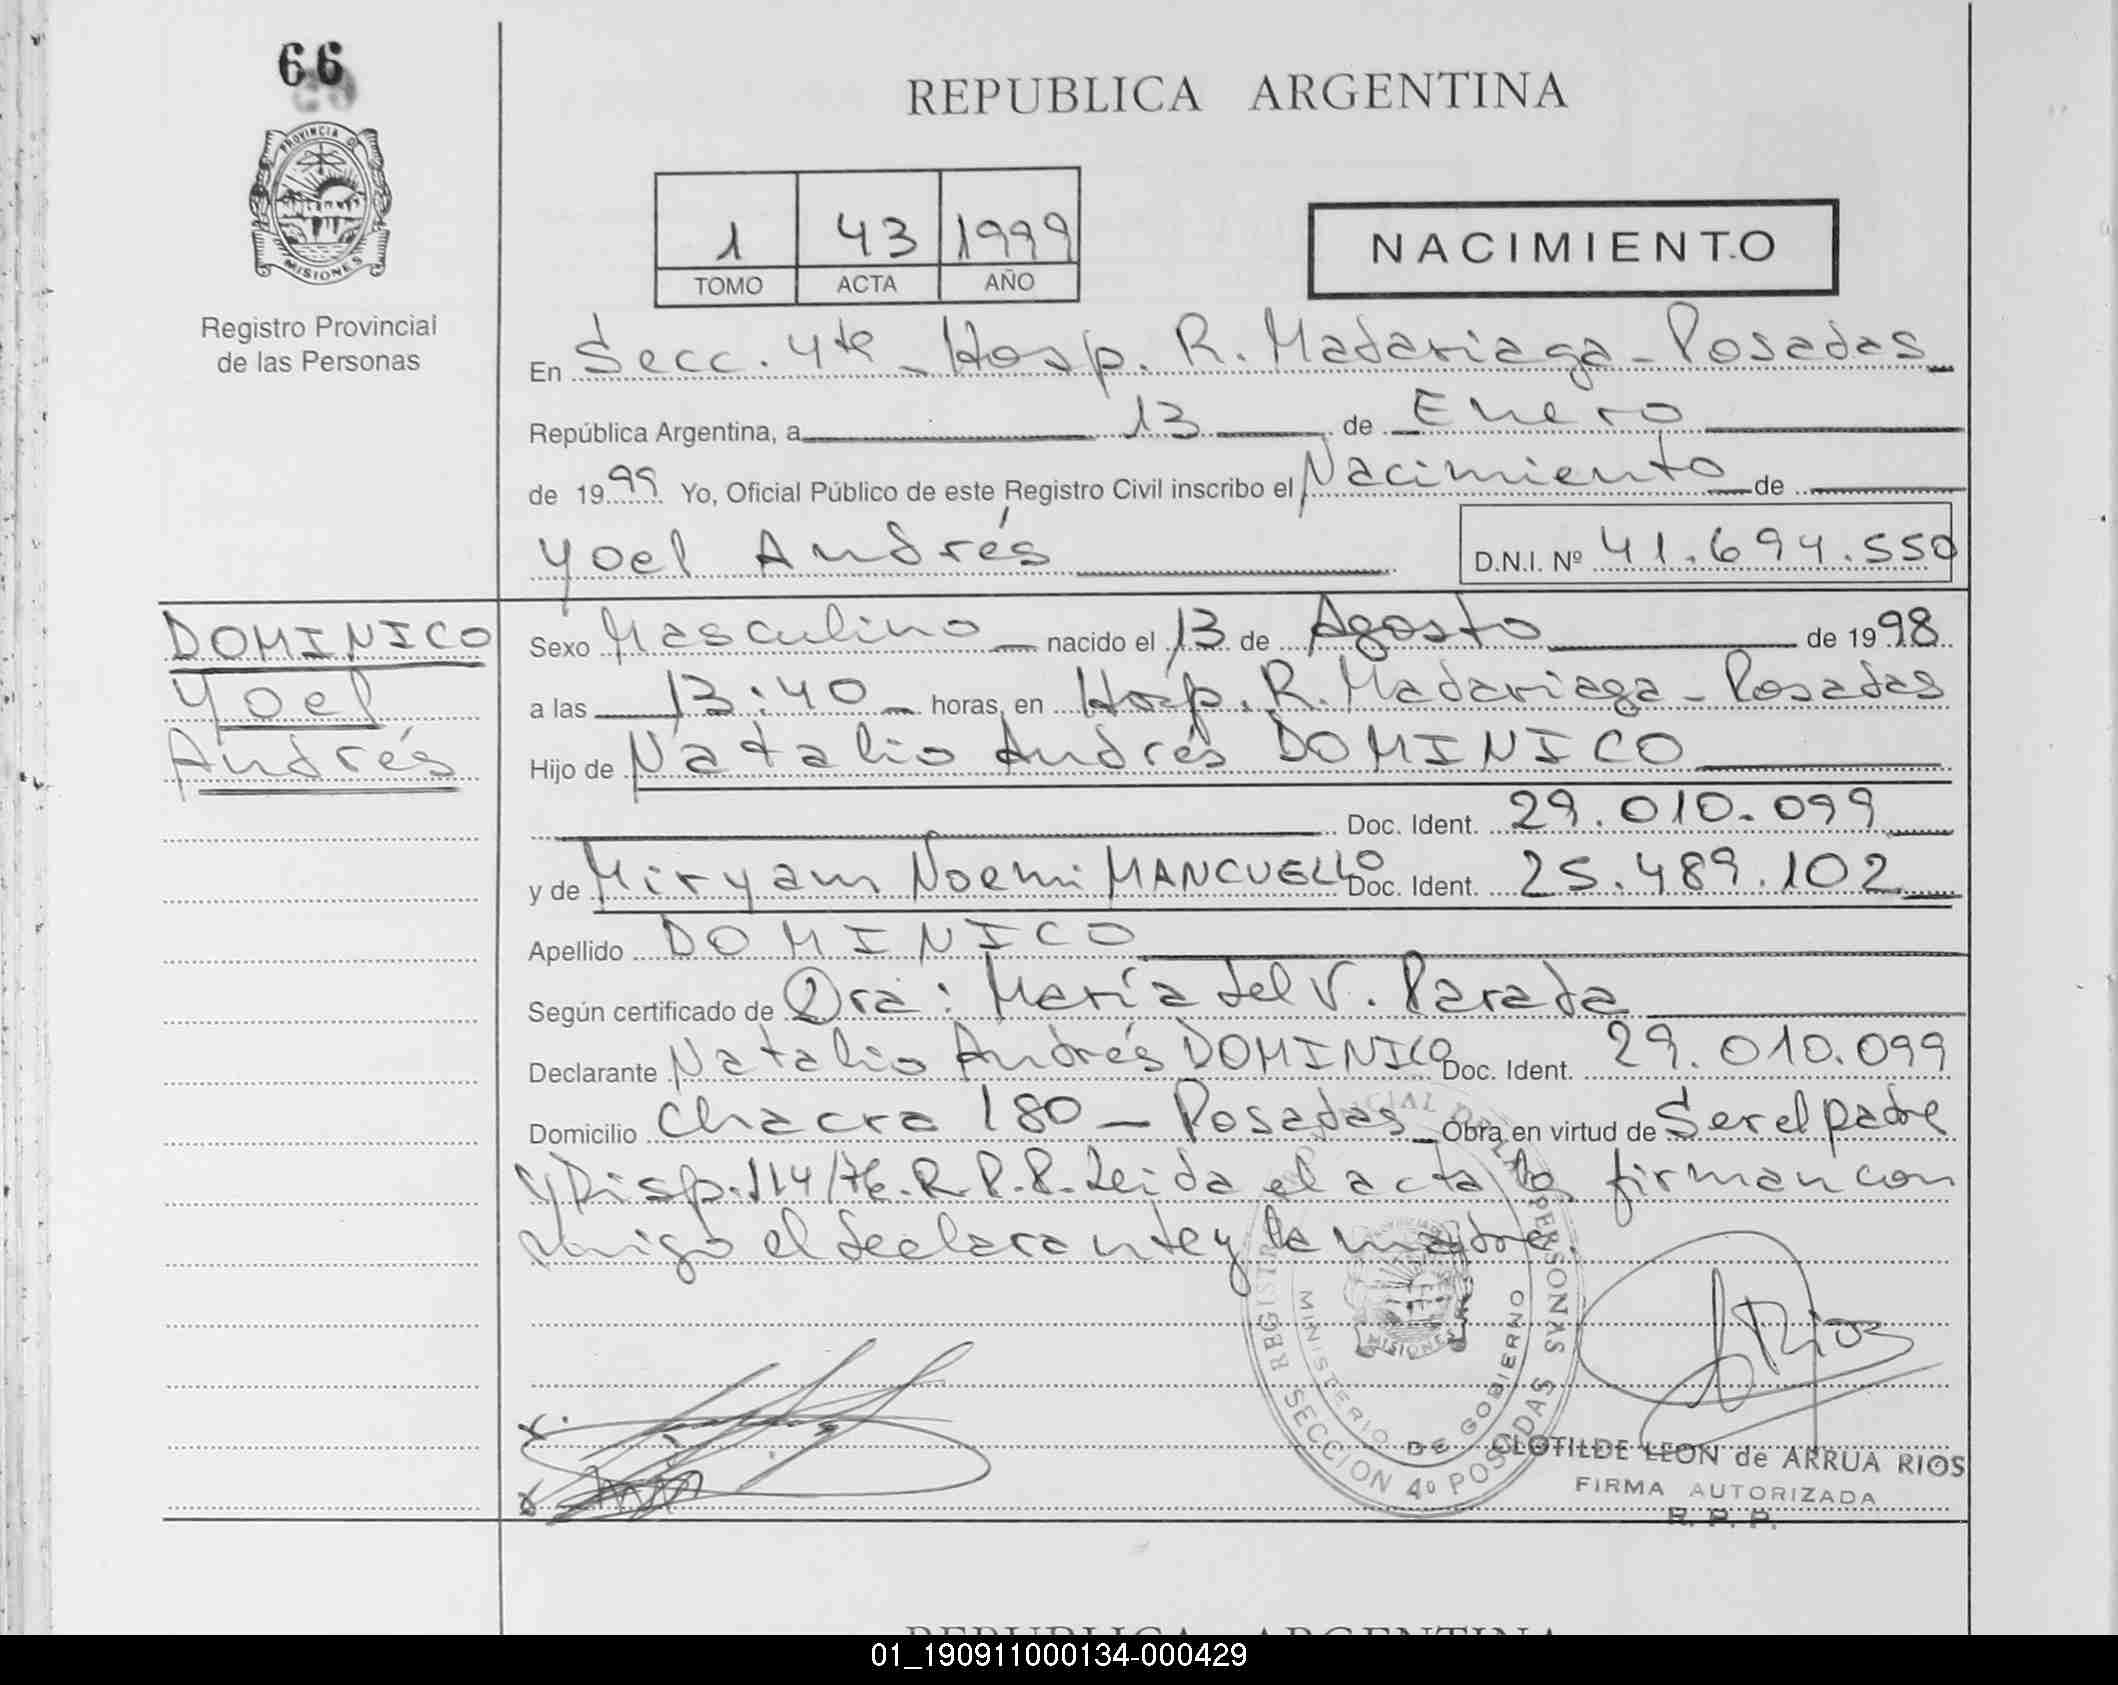 66
PROVINCIA DE
MISIONES
Registro Provincial
de las Personas
REPUBLICA ARGENTINA
1 43 1999
TOMO ACTA AÑO
NACIMIENTO
En Secc. 4ta - Hosp. R. Madariaga - Posadas
República Argentina, a 13 de Enero
de 1999 Yo, Oficial Público de este Registro Civil inscribo el Nacimiento de
Yoel Andrés D.N.I. Nº 41.694.550
DOMINICO
Yoel
Andrés
Sexo Masculino nacido el 13 de Agosto de 1998
a las 13:40 horas, en Hosp. R. Madariaga - Posadas
Hijo de Natalio Andrés DOMINICO
Doc. Ident. 29.010.099
y de Miryam Noemi MANCUELLO Doc. Ident. 25.489.102
Apellido DOMINICO
Según certificado de Dra: María del V. Parada
Declarante Natalio Andrés DOMINICO Doc. Ident. 29.010.099
Domicilio Chacra 180 - Posadas Obra en virtud de Ser el padre
y Disp. 114/76. R.P.P. Leida el acta la firman con
migo el declarante y la madre.
REGISTRO PROVINCIAL DE LAS PERSONAS
SECCION 4º POSADAS
MINISTERIO DE GOBIERNO
MISIONES
Rios
CLOTILDE LEON de ARRUA RIOS
FIRMA AUTORIZADA
R. P. P.
REPUBLICA ARGENTINA
01_190911000134-000429